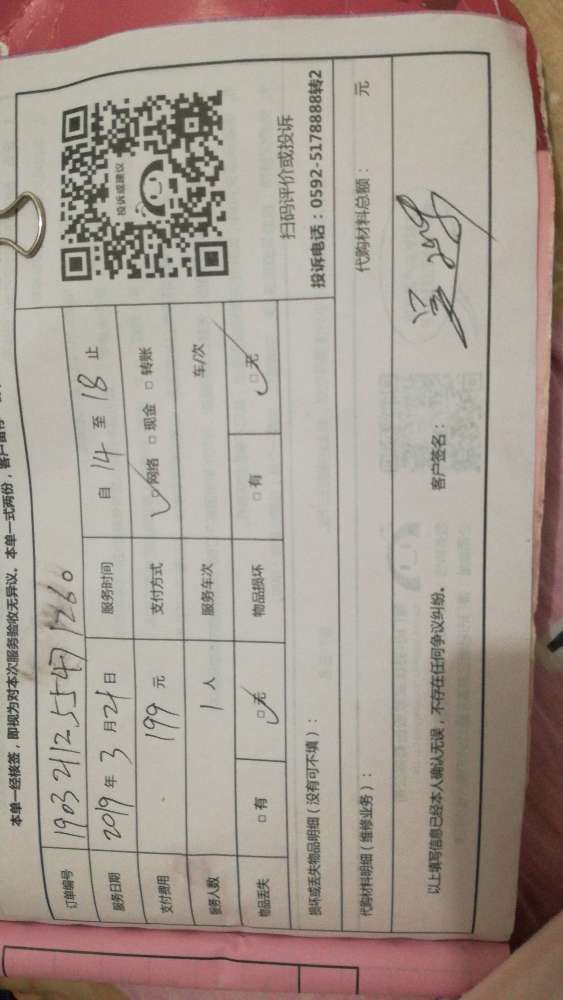 本单一经核签，即视为对本次服务验收无异议。本单一式两份，客户留存
订单编号 1903212554971260
服务日期 2019年3月21日 服务时间 自14至18止
支付费用 199元 支付方式 □网络 □现金 □转账
服务人数 1人 服务车次 车/次
物品丢失 □有 □无 物品损坏 □有 □无
投诉或建议
扫码评价或投诉
投诉电话：0592-5178888转2
损坏或丢失物品明细（没有可不填）：
代购材料明细（维修业务）： 代购材料总额： 元
以上填写信息已经本人确认无误，不存在任何争议纠纷。 客户签名：